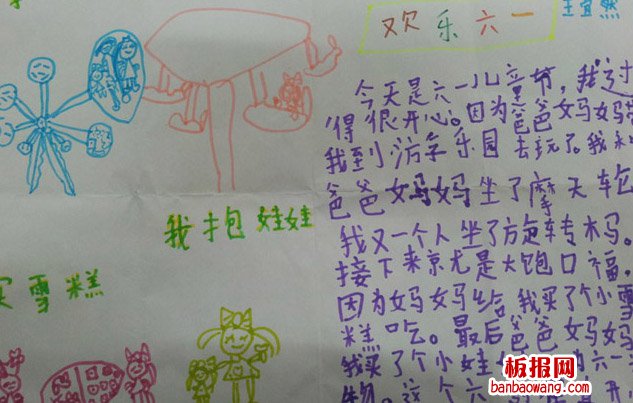 欢乐六一
王宜然
今天是六一儿童节,我过
得很开心。因为爸爸妈妈带
我到游学乐园去玩了。我
爸爸妈妈坐了摩天轮
我又一个人坐了旋转木马。
接下来就是大饱口福,
因为妈妈给我买了个小雪
糕吃。最后爸爸妈妈
我买了个小娃
物。这个六
我抱娃娃
买雪糕
板报网
banbaowang.com